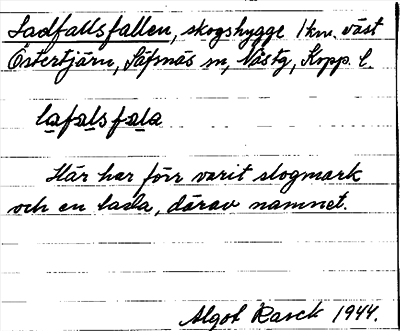 Ladfallsfallen, skogshygge 1 km. väst
Östertjärn, Säfsnäs sn, Västg, Kopp. l.
lafalsfala
Här har förr varit slogmark
och en lada, därav namnet.
Algot Rasck 1944.